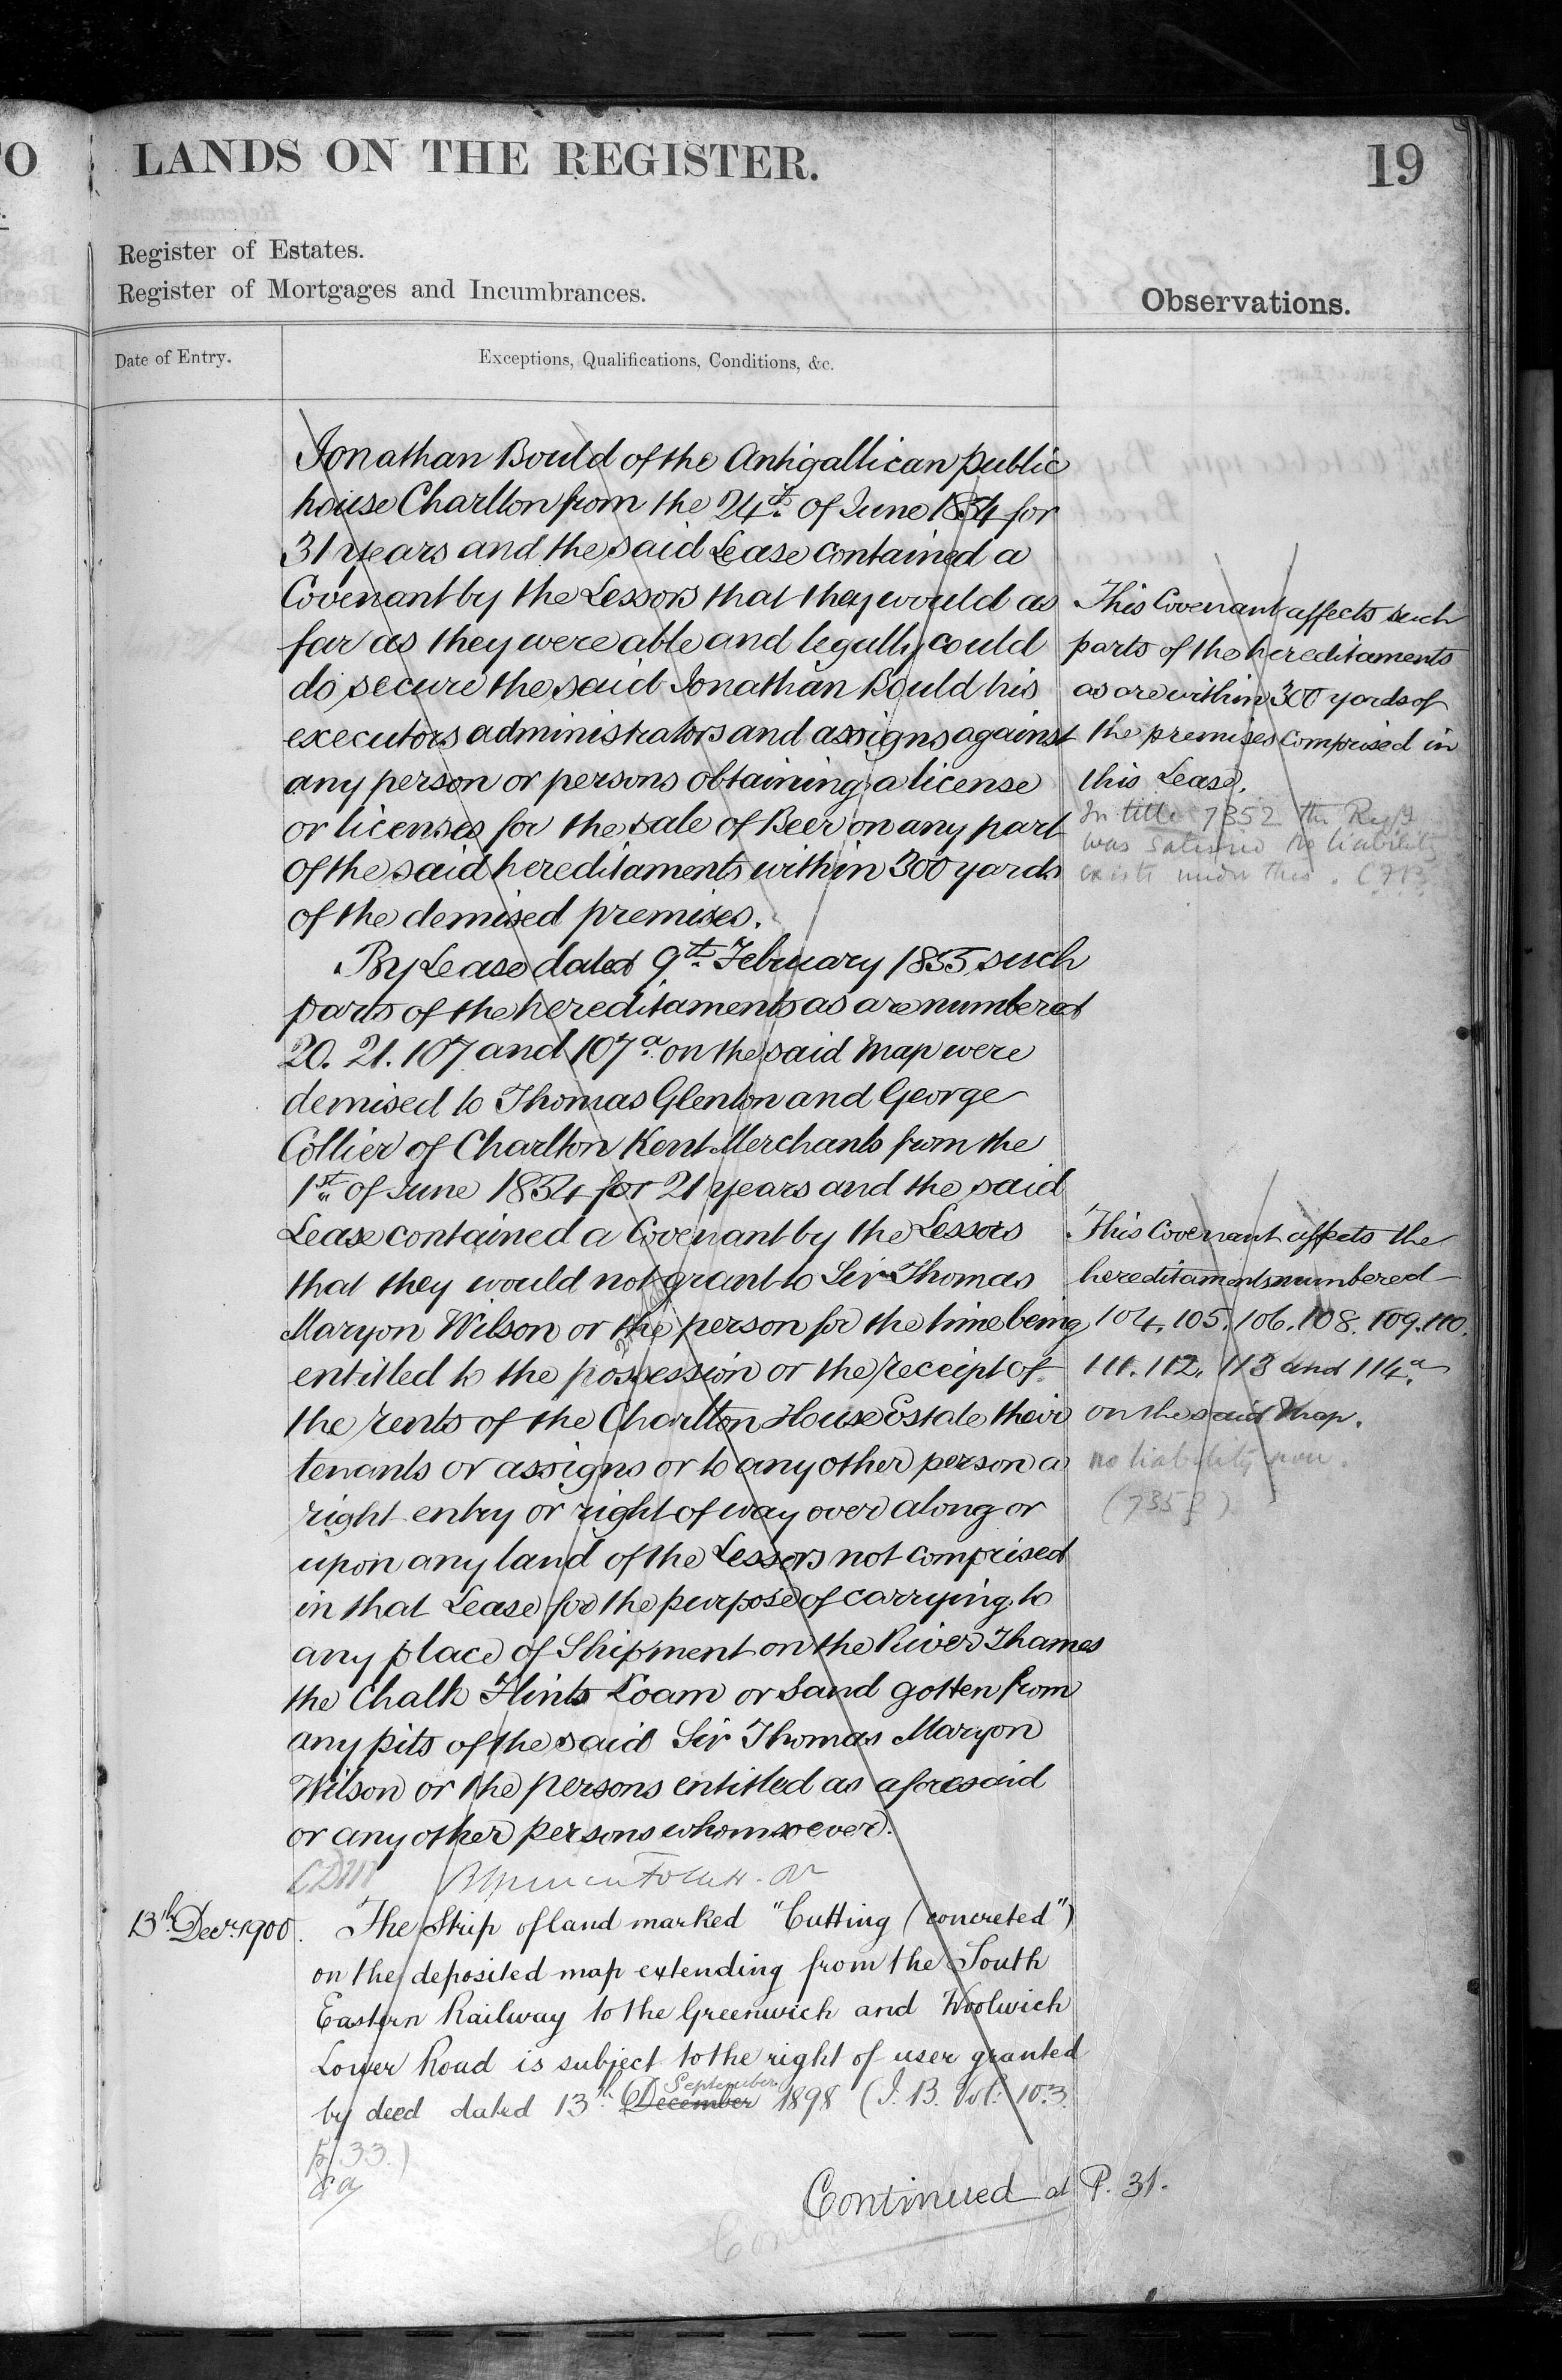 TO
LANDS ON THE REGISTER.
19
Register of Estates.
Register of Mortgages and Incumbrances.
Observations.
Date of Entry.
Exceptions, Qualifications, Conditions, &c.
Jonathan Bould of the Antigallican public
house Charlton from the 24th of June 1854 for
31 years and the said Lease contained a
Covenant by the Lessors that they would as
far as they were able and legally could
do secure the said Jonathan Bould his
executors administrators and assigns against
any person or persons obtaining a license
or licenses for the sale of Beer on any part
of the said hereditaments within 300 yards
of the demised premises.
This Covenant affects such
parts of the hereditaments
as are within 300 yards of
the premises comprised in
this Lease.
In title 7352 the Regr
was satisfied no liability
exists under this.
By Lease dated 9th February 1855 such
parts of the hereditaments as are numbered
20. 21. 107 and 107a on the said Map were
demised to Thomas Glenton and George
Collier of Charlton Kent Merchants from the
1st of June 1854 for 21 years and the said
Lease contained a Covenant by the Lessors
that they would not grant to Sir Thomas
Maryon Wilson or the person for the time being
entitled to the possession or the receipt of
the rents of the Charlton House Estate their
tenants or assigns or to any other person a
right entry or right of way over along or
upon any land of the Lessors not comprised
in that Lease for the purpose of carrying to
any place of Shipment on the River Thames
the Chalk Flints Loam or Sand gotten from
any pits of the said Sir Thomas Maryon
Wilson or the persons entitled as aforesaid
or any other persons whomsoever.
This Covenant affects the
hereditaments numbered
104. 105. 106. 108. 109. 110.
111. 112. 113 and 114a
on the said Map.
no liability now.
(7352)
13th Decr 1900.
The Strip of land marked "Cutting (concreted")
on the deposited map extending from the South
Eastern Railway to the Greenwich and Woolwich
Lower Road is subject to the right of user granted
by deed dated 13th December September 1898 (I. B. Vol: 103
p 33.)
Continued at P. 31.